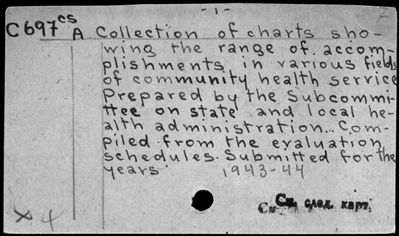 - 1 -
C697 cs A Collection of charts sho-
wing the range of accom-
plishments in various fields
of community health service
Prepared by the Subcommi-
ttee on state and local he-
alth administration... Com-
piled from the evaluation
schedules. Submitted for the
years 1943-44
См. след. карт.